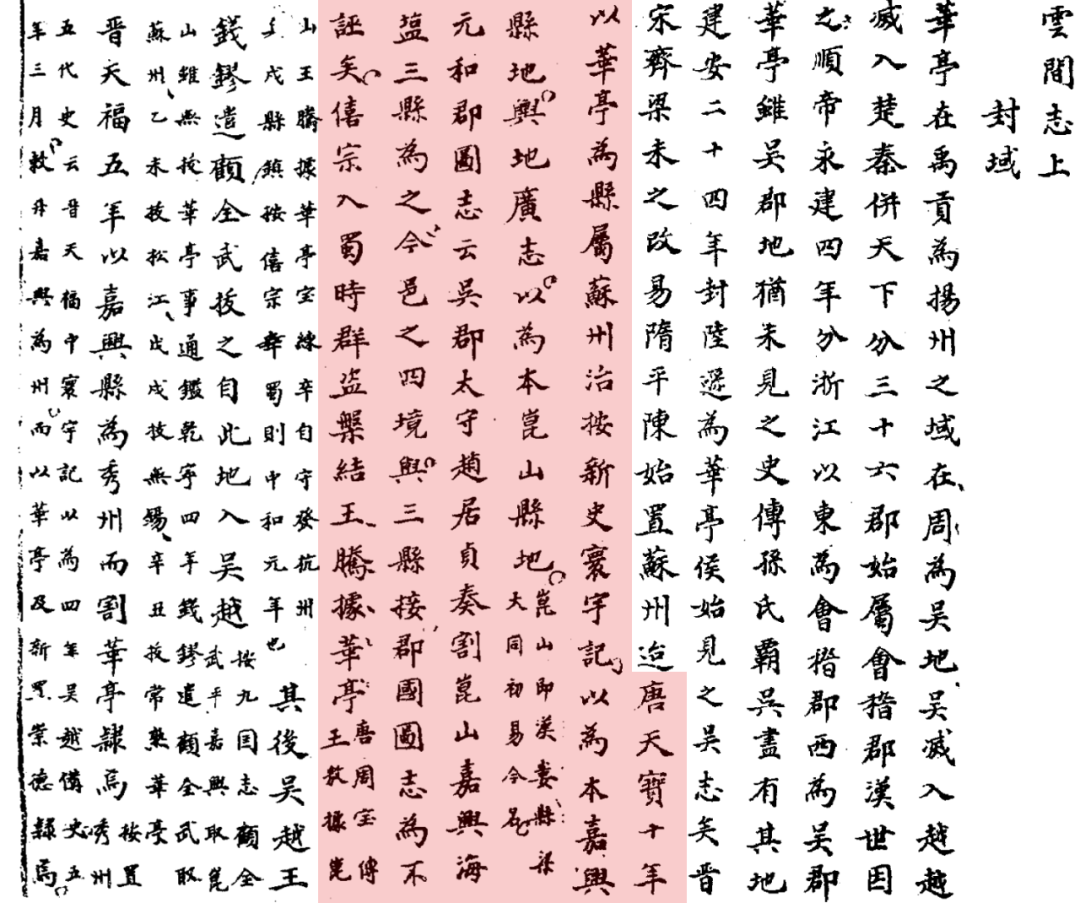 雲間志上
封域
華亭在禹貢為揚州之域在周為吳地吳滅入越越
滅入楚秦併天下分三十六郡始屬會稽郡漢世因
之順帝永建四年分浙江以東為會稽郡西為吳郡
華亭雖吳郡地猶未見之史傳孫氏霸吳盡有其地
建安二十四年封陸遜為華亭侯始見之吳志矣晉
宋齊梁未之改易隋平陳始置蘇州迨唐天寶十年
以華亭為縣屬蘇州治按新史寰宇記以為本嘉興
縣地輿地廣志以為本崑山縣地崑山即漢婁縣梁
大同初易今名
元和郡圖志云吳郡太守趙居貞奏割崑山嘉興海
塩三縣為之今邑之四境與三縣接郡國圖志為不
誣矣僖宗入蜀時群盜槃結王騰據華亭唐周宝傳
王敖據崑
山王騰據華亭宝練卒自守發杭州
戍縣鎮按僖宗幸蜀則中和元年也
其後吳越王
錢鏐遣顧全武拔之自此地入吳越按九国志顧全
武平嘉興取崑
山雖無按華亭事通鑑乾寧四年錢鏐遣顧全武取
蘇州乙未拔松江戊戌拔無錫辛丑拔常熟華亭
晉天福五年以嘉興縣為秀州而割華亭隸焉按置
秀州
五代史云晉天福中寰宇記以為四年吳越備史五
年三月敖升嘉興為州而以華亭及新置崇德隸焉